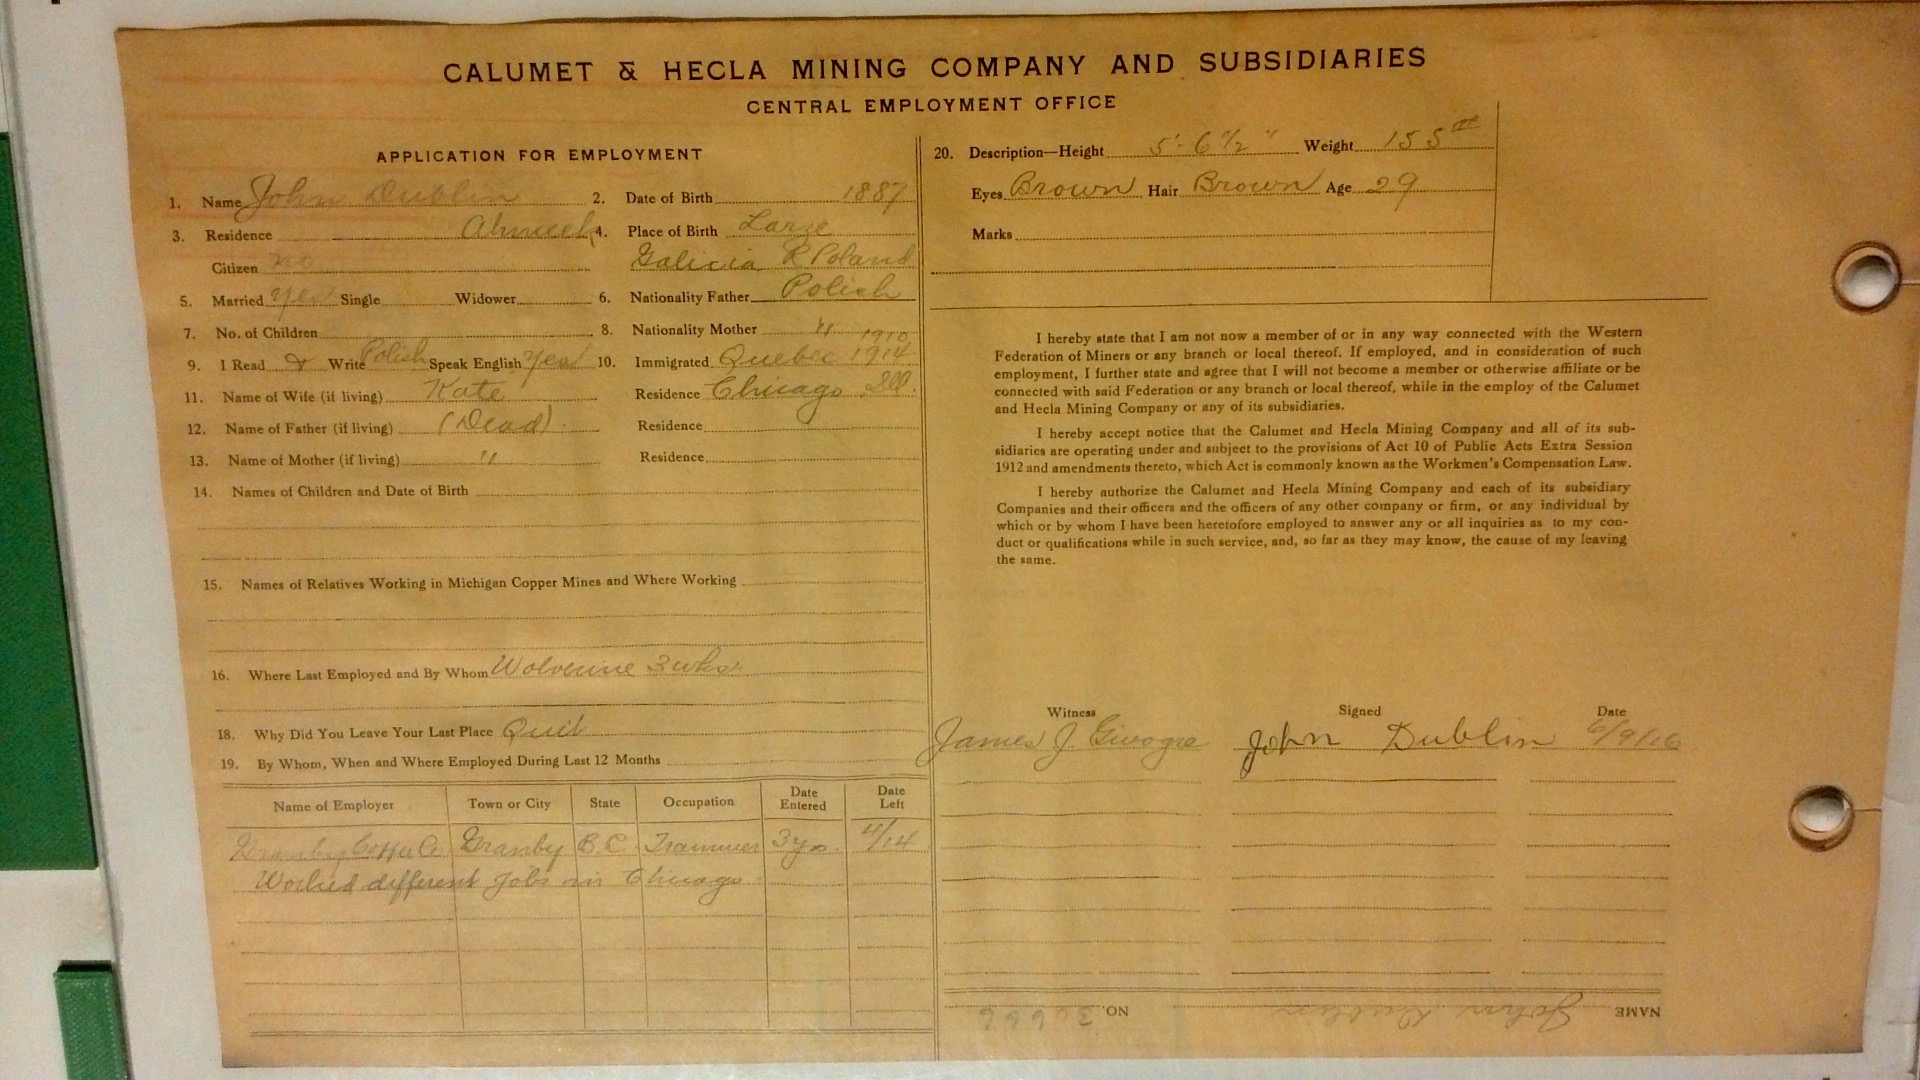 CALUMET & HECLA MINING COMPANY AND SUBSIDIARIES
CENTRAL EMPLOYMENT OFFICE
APPLICATION FOR EMPLOYMENT
1. Name John Dublin 2. Date of Birth 1887
3. Residence Ahmeek 4. Place of Birth
Citizen no Galicia R Poland
5. Married yes Single Widower 6. Nationality Father Polish
7. No. of Children 8. Nationality Mother "
1910
9. I Read & Write Polish Speak English yes 10. Immigrated Quebec 1914
11. Name of Wife (if living) Kate Residence Chicago Ill.
12. Name of Father (if living) (Dead) Residence
13. Name of Mother (if living) " Residence
14. Names of Children and Date of Birth
15. Names of Relatives Working in Michigan Copper Mines and Where Working
16. Where Last Employed and By Whom Wolverine 3 wks
18. Why Did You Leave Your Last Place Quit
19. By Whom, When and Where Employed During Last 12 Months
Name of Employer Town or City State Occupation Date Entered Date Left
Granby Copper Co Granby B.C. Trammer 3 yrs. 4/14
Worked different jobs in Chicago
20. Description—Height 5'-6 1/2" Weight 155
Eyes Brown Hair Brown Age 29
Marks
I hereby state that I am not now a member of or in any way connected with the Western
Federation of Miners or any branch or local thereof. If employed, and in consideration of such
employment, I further state and agree that I will not become a member or otherwise affiliate or be
connected with said Federation or any branch or local thereof, while in the employ of the Calumet
and Hecla Mining Company or any of its subsidiaries.
I hereby accept notice that the Calumet and Hecla Mining Company and all of its sub-
sidiaries are operating under and subject to the provisions of Act 10 of Public Acts Extra Session
1912 and amendments thereto, which Act is commonly known as the Workmen's Compensation Law.
I hereby authorize the Calumet and Hecla Mining Company and each of its subsidiary
Companies and their officers and the officers of any other company or firm, or any individual by
which or by whom I have been heretofore employed to answer any or all inquiries as to my con-
duct or qualifications while in such service, and, so far as they may know, the cause of my leaving
the same.
Witness Signed Date
James J. John Dublin 6/9/16
NAME John Dublin NO. 30666